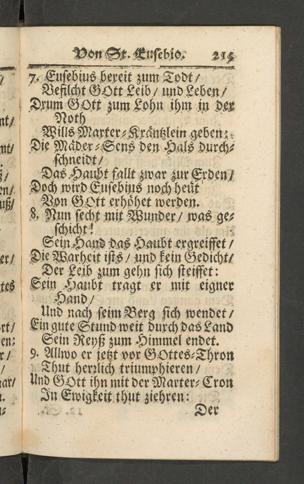 Von St. Eusebio. 215
7. Eusebius bereit zum Todt/
Befilcht GOtt Leib/ und Leben/
Drum GOtt zum Lohn ihm in der
Noth
Wills Marter-Kräntzlein geben:
Die Mäder-Sens den Hals durch-
schneidt/
Das Haubt fallt zwar zur Erden/
Doch wird Eusebius noch heut
Von GOtt erhöhet werden.
8. Nun secht mit Wunder/ was ge-
schicht!
Sein Hand das Haubt ergreiffet/
Die Warheit ists/ und kein Gedicht/
Der Leib zum gehn sich steiffet:
Sein Haubt tragt er mit eigner
Hand/
Und nach seim Berg sich wendet/
Ein gute Stund weit durch das Land
Sein Reyß zum Himmel endet.
9. Allwo er jetzt vor GOttes-Thron
Thut herrlich triumphieren/
Und GOtt ihn mit der Marter-Cron
In Ewigkeit thut ziehren:
Der